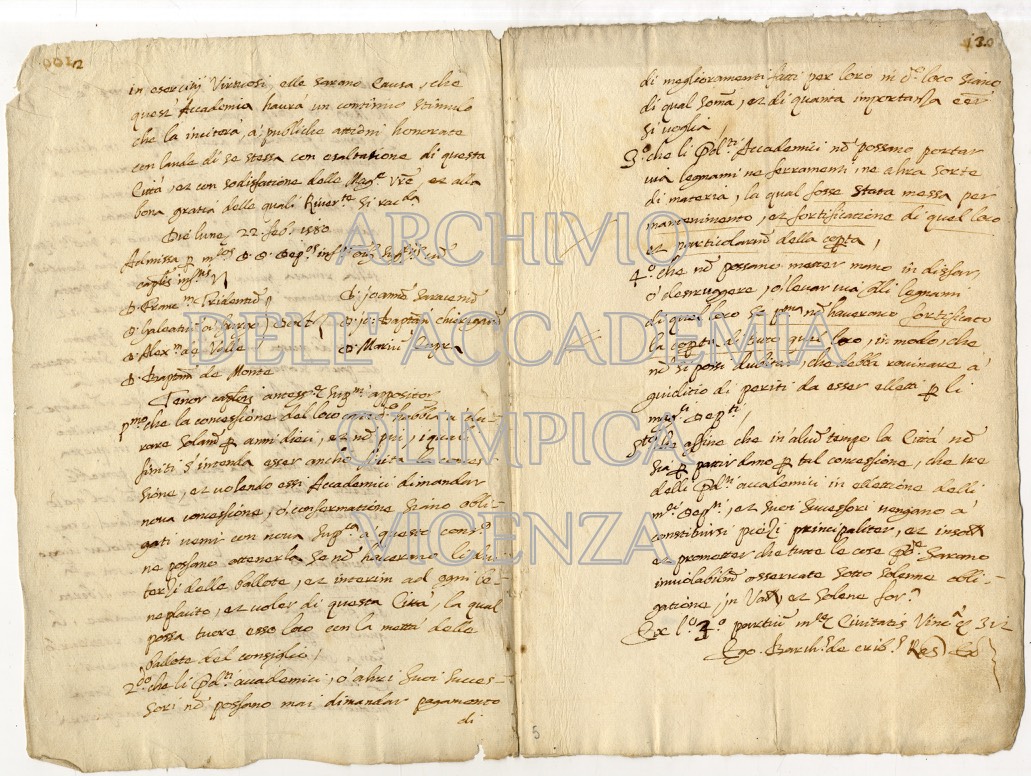 in esercitij Virtuosi, elle sarano causa, che
quest' Accademia haura un continuo stimulo
che la inciterà, à publiche attioni honorate
con laude di se stessa con esaltatione di questa
Città, et con sodisfatione delle Mag.ce Vre, et alla
bona gratia delle quali River.te si rac.da
Die lune, 22. feb. 1580
Admissa p
D. Franc.
D. Alex.m de
D. Baptam de Monte
D. Joannem Saracenum
D. Jo: Baptam
D. Marium Repeta
Tenor
p.mo che la concessione del loco habbia a du-
rare solam.te p anni dieci, et nō più, i quali
finiti s'intenda esser ancho finita la conces-
sione, et volendo essi Accademici dimandar
nova concessione, ò confermatione siano obli-
gati venir con nova à questo cons.o
ne possano ottenerla se nō haverano li du-
terzi delle ballote, et interim ad ogni be-
neplacito, et voler di questa Città, la qual
possa tuore esso loco con la mettà delle
ballote del consiglio,
2.do che li Pdtti academici, ò altri suoi succes-
sori nō possano mai dimandar pagamento
di
130
di meglioramenti fatti per loro in d.o loco siano
di qual soma, et di quanta importanza eēr
si voglia,
3.o che li Pdtti Accademici nō possano portar
via legnami ne ferramenti, ne altra sorte
di materia, la qual fosse stata messa per
mantenimento, et fortificatione di quel loco
et particolarm della coperta,
4.o che nō possano metter mano in disfar,
ò destruggere, o levar via legnami
di quel loco se p.ma nō haverano fortificato
la coperta di tuto quel loco, in modo, che
nō si possi dubitar, che debba rovinare à
giuditio di periti da esser elletti p li
mag.ci Dep.ti,
5.to che affine che in alcū tempo la Città nō
sia p patir dano p tal concessione, che tre
delli Pdtti academici in ellettione delli
m.ci Dep.ti, et suoi successori vengano à
constituirsi piezi principaliter, et insolidum
et prometter che tutte le cose sarano
inviolabilm osservate sotto solenne obli-
gatione in Valida et solene for.a
Ex l.o partium m.ce Civitatis Vinc.ae
Ego
5
ARCHIVIO
DELL'ACCADEMIA
OLIMPICA
VICENZA